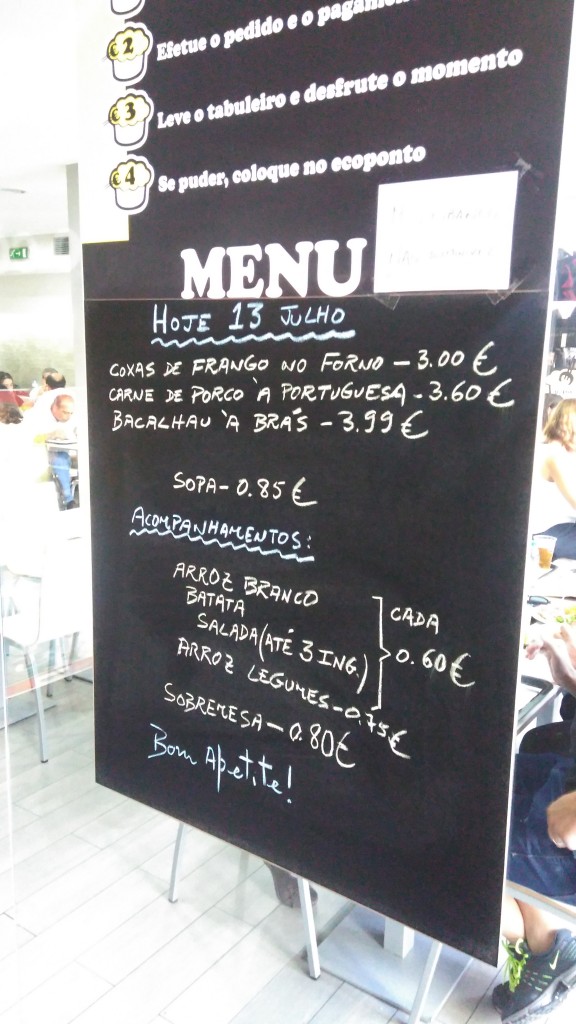 2 Efetue o pedido e o
3 Leve o tabuleiro e desfrute o momento
4 Se puder, coloque no ecoponto
MENU
HOJE 13 JULHO
COXAS DE FRANGO NO FORNO - 3.00 €
CARNE DE PORCO À PORTUGUESA - 3.60 €
BACALHAU À BRÁS - 3.99 €
SOPA - 0.85 €
ACOMPANHAMENTOS:
ARROZ BRANCO
BATATA
SALADA (ATÉ 3 ING.)
CADA
0.60 €
ARROZ LEGUMES - 0.75 €
SOBREMESA - 0.80 €
Bom Apetite!